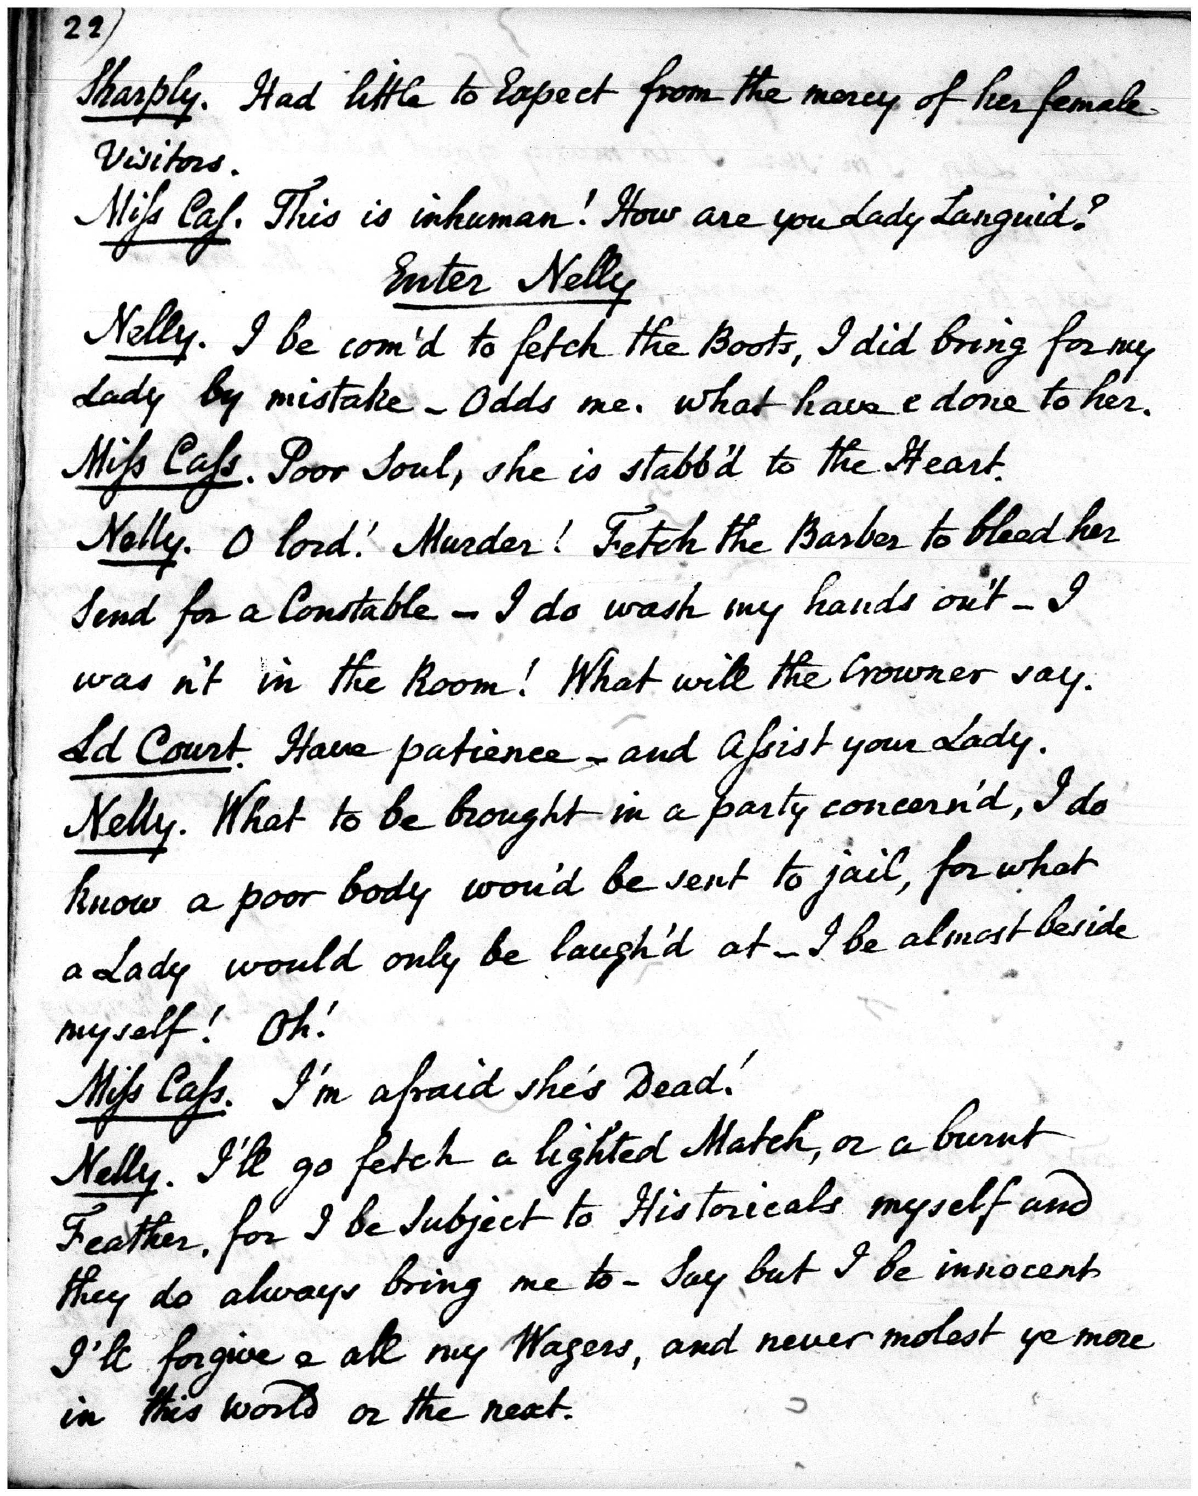 22)
Sharply. Had little to Expect from the mercy of her female
Visitors.
Miſs Caſ. This is inhuman! How are you Lady Languid?
Enter Nelly
Nelly. I be com'd to fetch the Boots, I did bring for my
Lady by mistake – Odds me. what have e done to her.
Miſs Caſs. Poor Soul, she is stabb'd to the Heart.
Nelly. O lord! Murder! Fetch the Barber to bleed her
Send for a Constable – I do wash my hands on't – I
was n't in the Room! What will the Crowner say.
Ld Court. Have patience – and Aſsist your Lady.
Nelly. What to be brought in a party concern'd, I do
know a poor body wou'd be sent to jail, for what
a Lady would only be laugh'd at – I be almost beside
myself! Oh!
Miſs Caſs. I'm afraid she's Dead!
Nelly. I'll go fetch a lighted Match, or a burnt
Feather, for I be Subject to Historicals myself and
they do always bring me to – Say but I be innocent
I'll forgive e all my Wagers, and never molest ye more
in this world or the next.